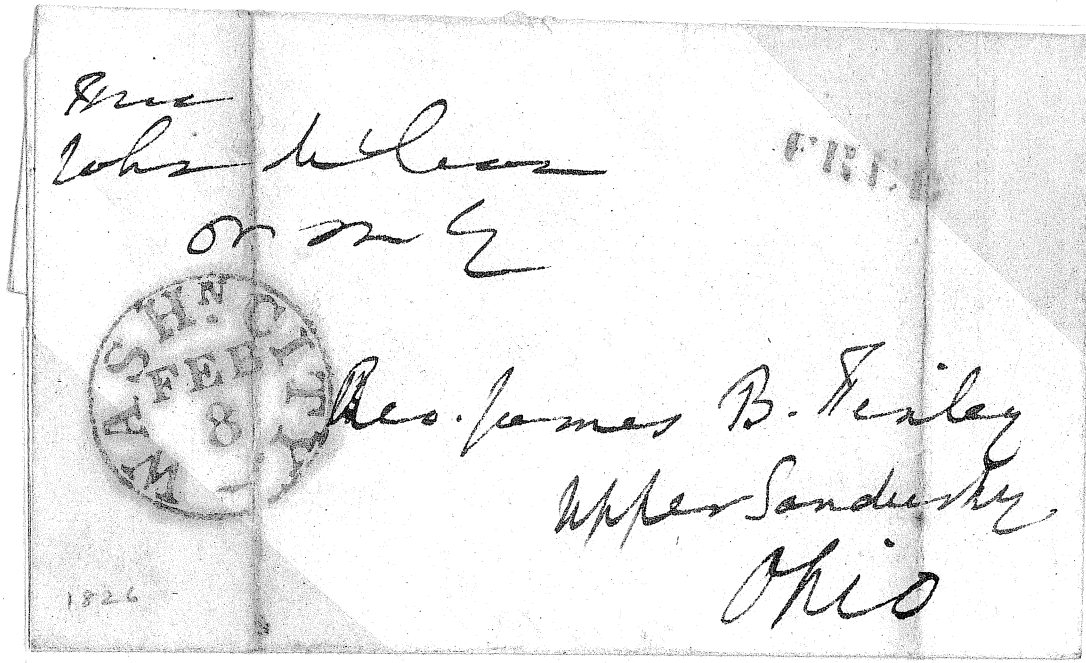 Free
John McLean
FREE
P M G
WASHN. CITY.
FEB
8
Rev. James B. Finley
Upper Sandusky
Ohio
1826